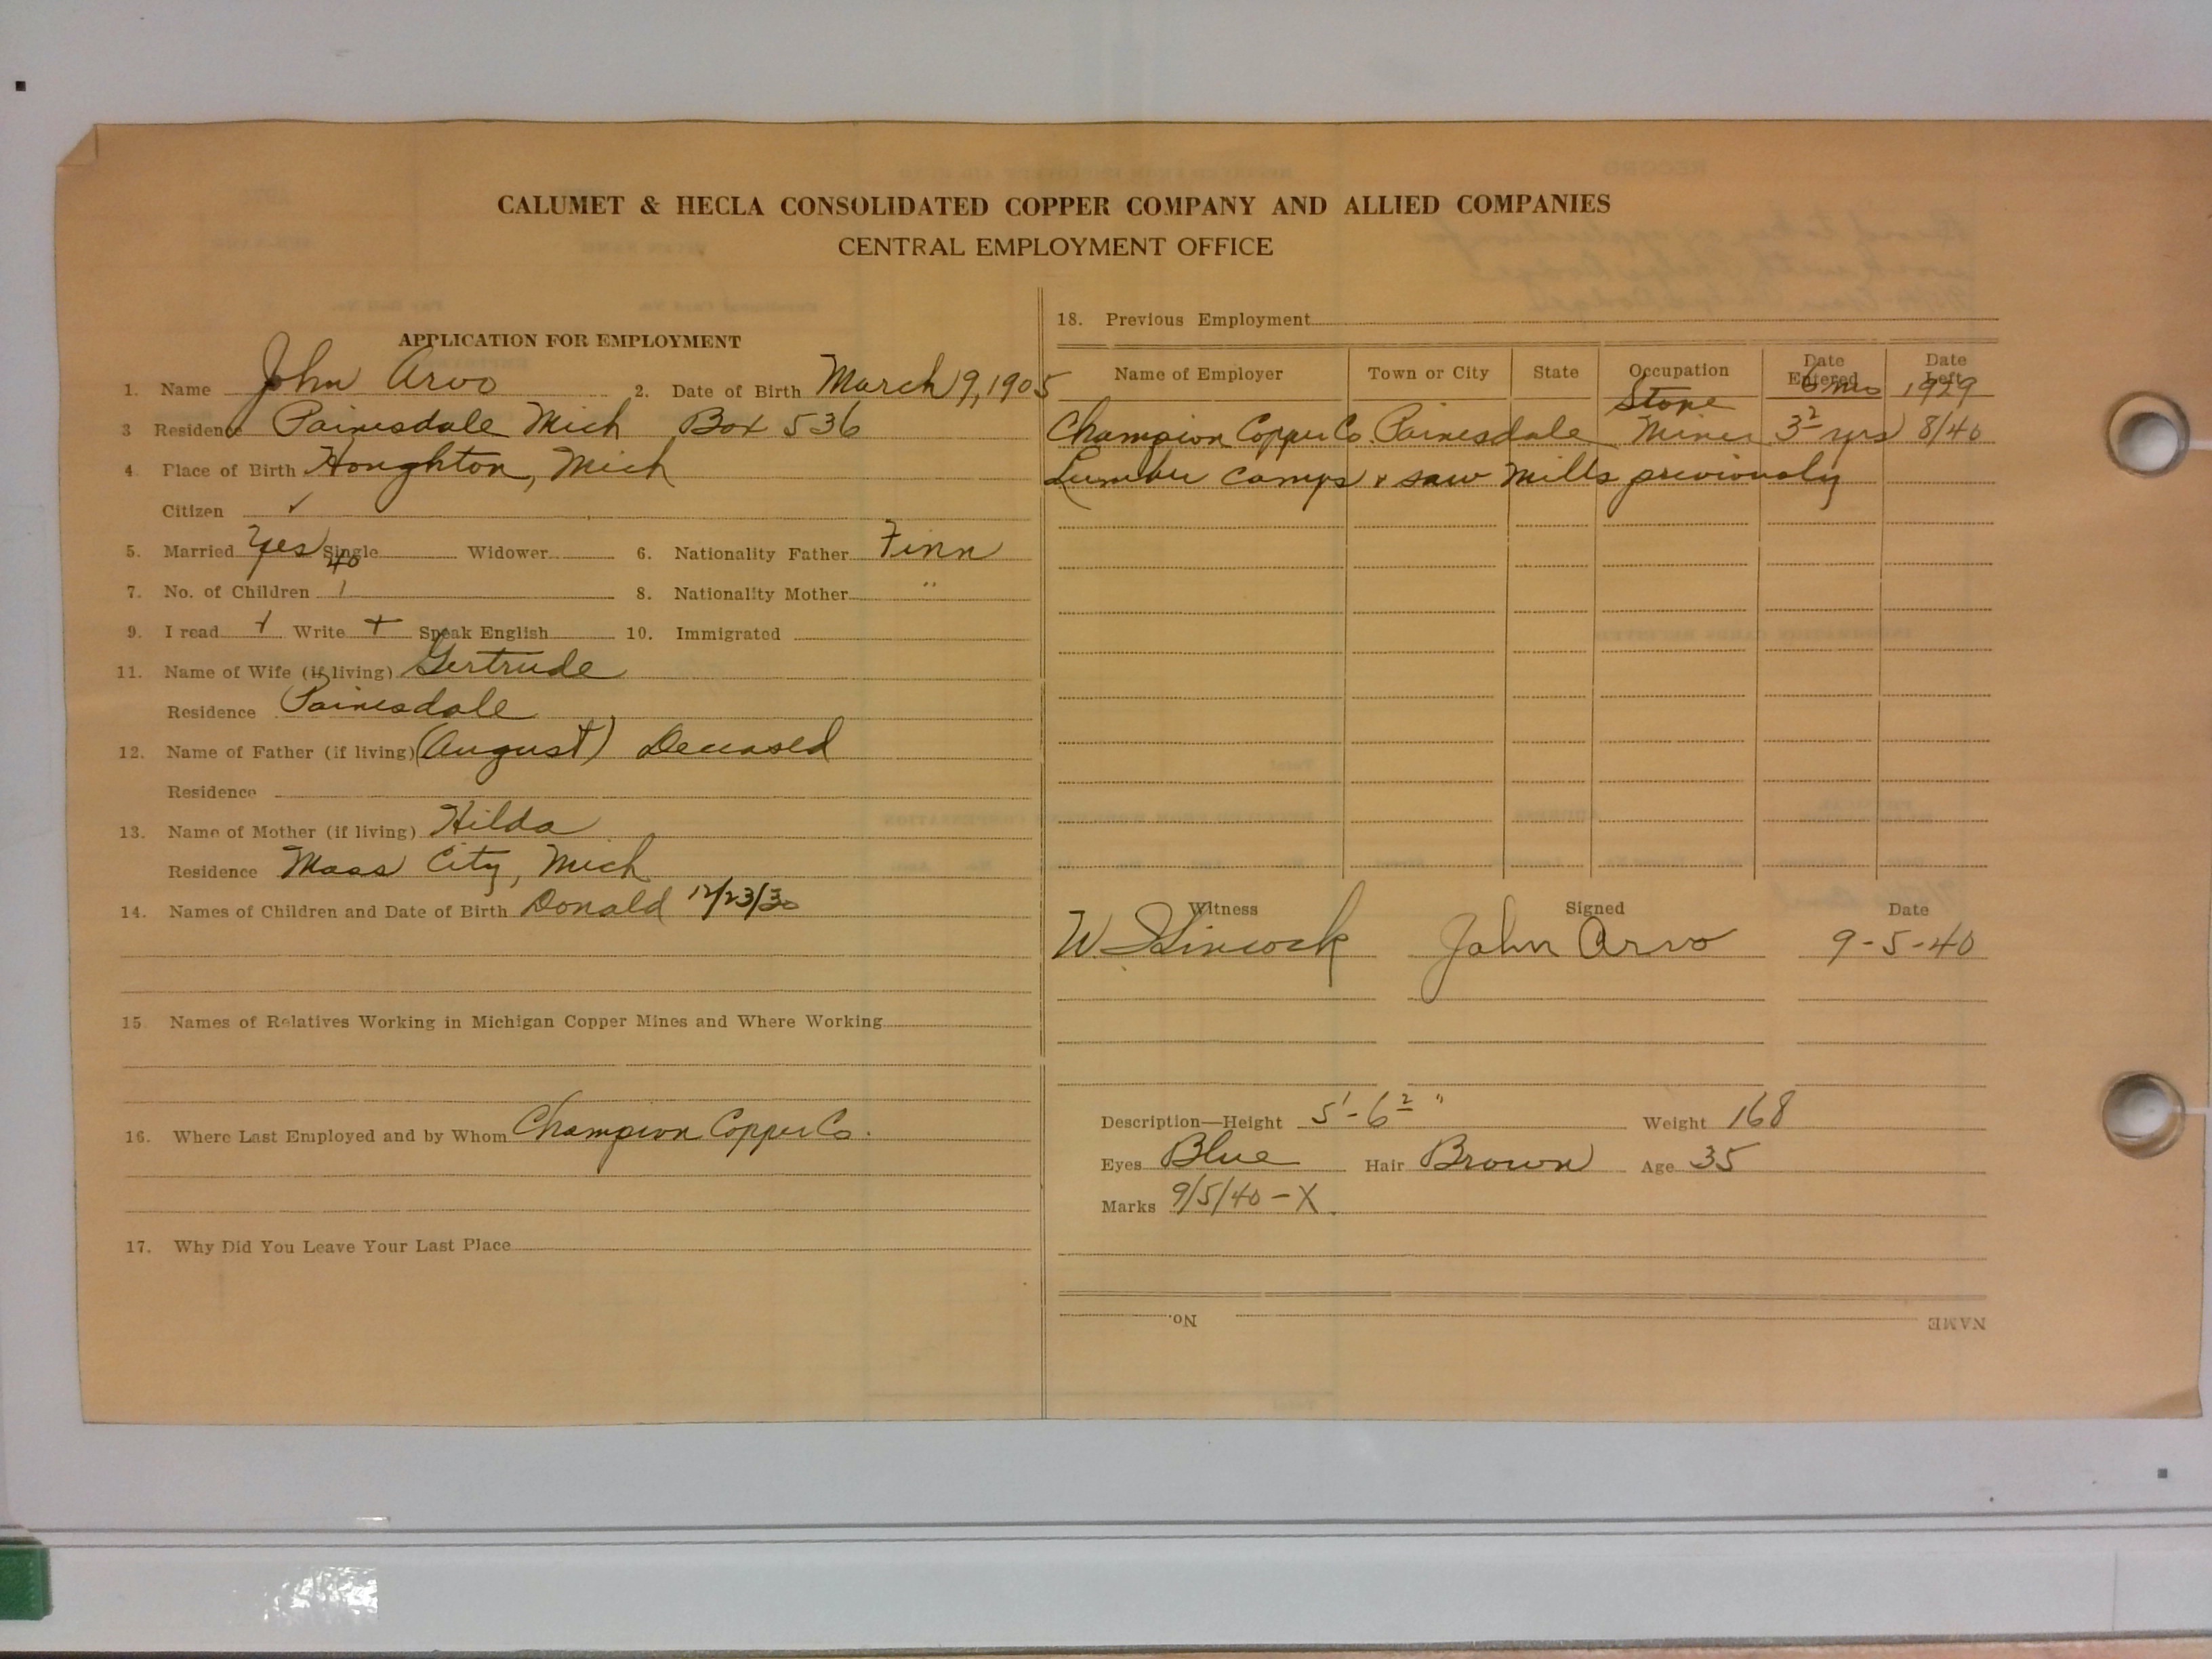 CALUMET & HECLA CONSOLIDATED COPPER COMPANY AND ALLIED COMPANIES
CENTRAL EMPLOYMENT OFFICE
APPLICATION FOR EMPLOYMENT
1. Name John Arvo 2. Date of Birth March 9, 1905
3 Residence Painesdale Mich Box 536
4. Place of Birth Houghton, Mich
Citizen ✓
5. Married Yes Single Widower 6. Nationality Father Finn
40
7. No. of Children 1 8. Nationality Mother "
9. I read + Write + Speak English 10. Immigrated
11. Name of Wife (if living) Gertrude
Residence Painesdale
12. Name of Father (if living) (August) Deceased
Residence
13. Name of Mother (if living) Hilda
Residence Mass City, Mich
14. Names of Children and Date of Birth Donald 12/23/30
15 Names of Relatives Working in Michigan Copper Mines and Where Working
16. Where Last Employed and by Whom Champion Copper Co.
17. Why Did You Leave Your Last Place
18. Previous Employment
Name of Employer Town or City State Occupation Date Entered Date Left
6 mos 1929
Champion Copper Co. Painesdale Miner 3 2 yrs 8/40
Lumber Camps & saw mills previously
Witness Signed Date
W. John Arvo 9-5-40
Description—Height 5'-6 2 " Weight 168
Eyes Blue Hair Brown Age 35
Marks 9/5/40 - X
NAME No.